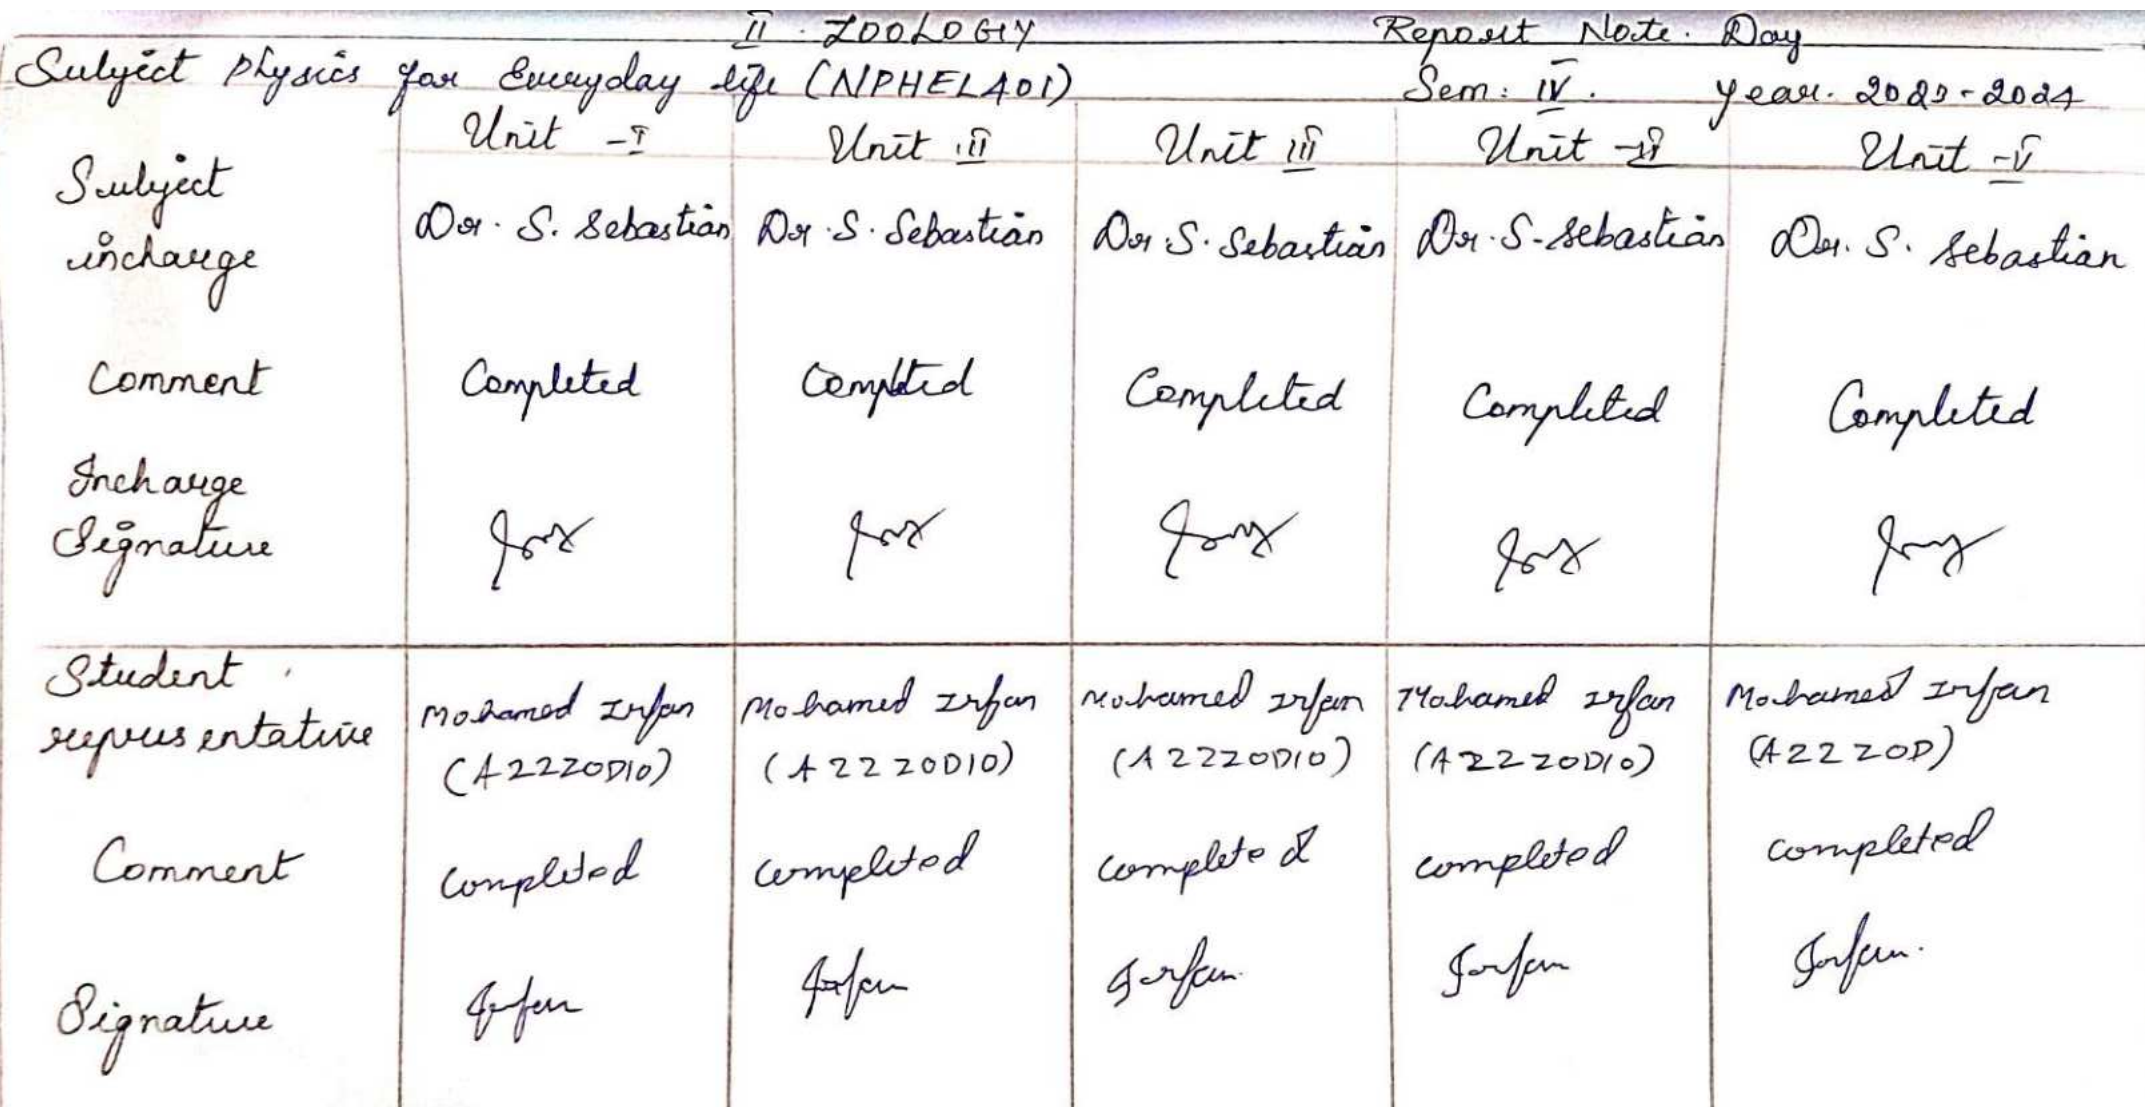 II. ZOOLOGY Report Note. Day
Subject Physics for Everyday life (NPHELA01) Sem: IV. year. 2023-2024
Unit -I Unit II Unit III Unit -IV Unit -V
Subject
incharge Dr. S. Sebastian Dr. S. Sebastian Dr S. Sebastian Dr. S. Sebastian Dr. S. Sebastian
Comment Completed Completed Completed Completed Completed
Incharge
Signature
Student
representative Mohamed Irfan Mohamed Irfan Mohamed Irfan Mohamed Irfan Mohamed Irfan
(A22ZOD10) (A22ZOD10) (A22ZOD10) (A22ZOD10) (A22ZOD)
Comment completed completed completed completed completed
Signature Irfan Irfan Irfan. Irfan Irfan.